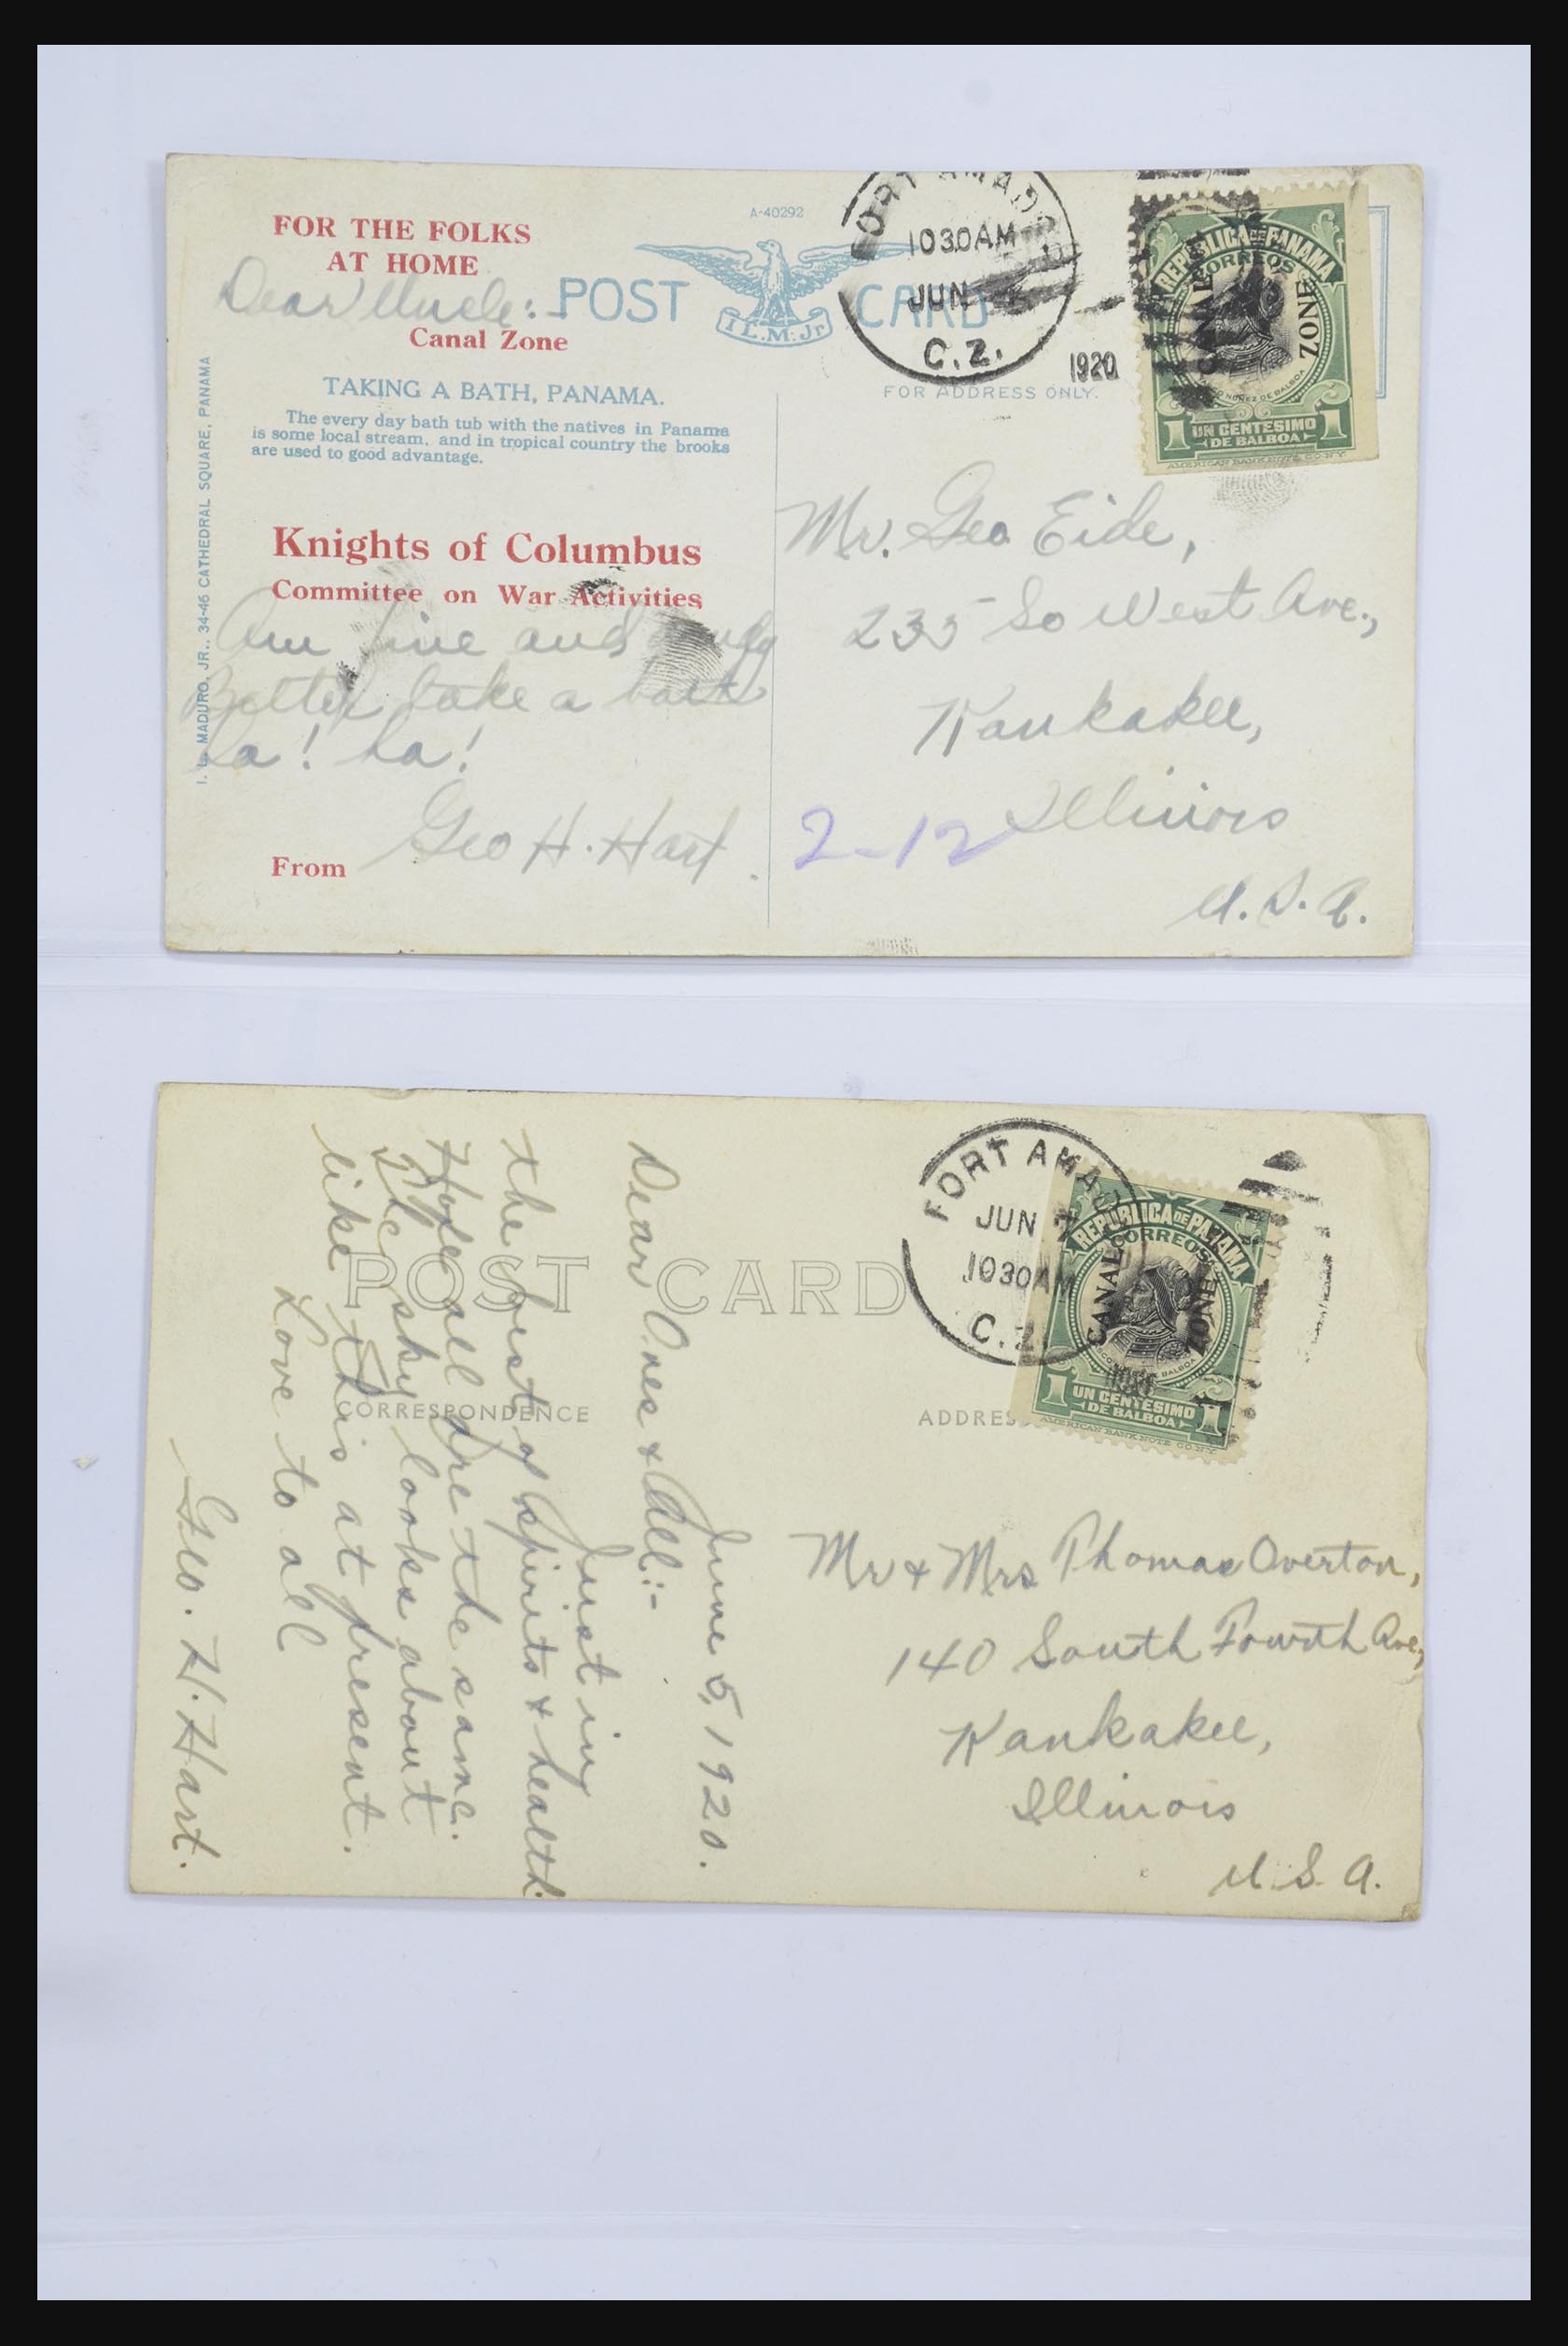 FOR THE FOLKS
AT HOME
Dear Uncle:-
Canal Zone
TAKING A BATH, PANAMA.
The every day bath tub with the natives in Panama
is some local stream, and in tropical country the brooks
are used to good advantage.
Knights of Columbus
Committee on War Activities
Am fine and
Better take a bath
Ha! ha!
From Geo H. Hart.
I. L. MADURO, JR., 34-46 CATHEDRAL SQUARE, PANAMA
A-40292
POST CARD
I.L.M. Jr.
FOR ADDRESS ONLY.
FORT AMADOR
1030AM
JUN
C.Z.
1920
REPUBLICA DE PANAMA
CORREOS
CANAL ZONE
NUNEZ DE BALBOA
1 UN CENTESIMO 1
DE BALBOA
AMERICAN BANK NOTE CO. N.Y.
Mr. Geo Eide,
235 So West Ave.,
Kankakee,
Illinois
U.S.A.
2-12
POST CARD
CORRESPONDENCE
ADDRESS
June 5, 1920.
Dear Ones & All:-
Just in
the best of spirits & health.
Hope all are the same.
The sky looks about
like this at present.
Love to all
Geo. H. Hart.
FORT AMAD
JUN 7
1030AM
C.Z.
REPUBLICA DE PANAMA
CORREOS
CANAL ZONE
BALBOA
1 UN CENTESIMO 1
DE BALBOA
AMERICAN BANK NOTE CO. N.Y.
Mr & Mrs Thomas Overton,
140 South Fourth Ave,
Kankakee,
Illinois
U.S.A.